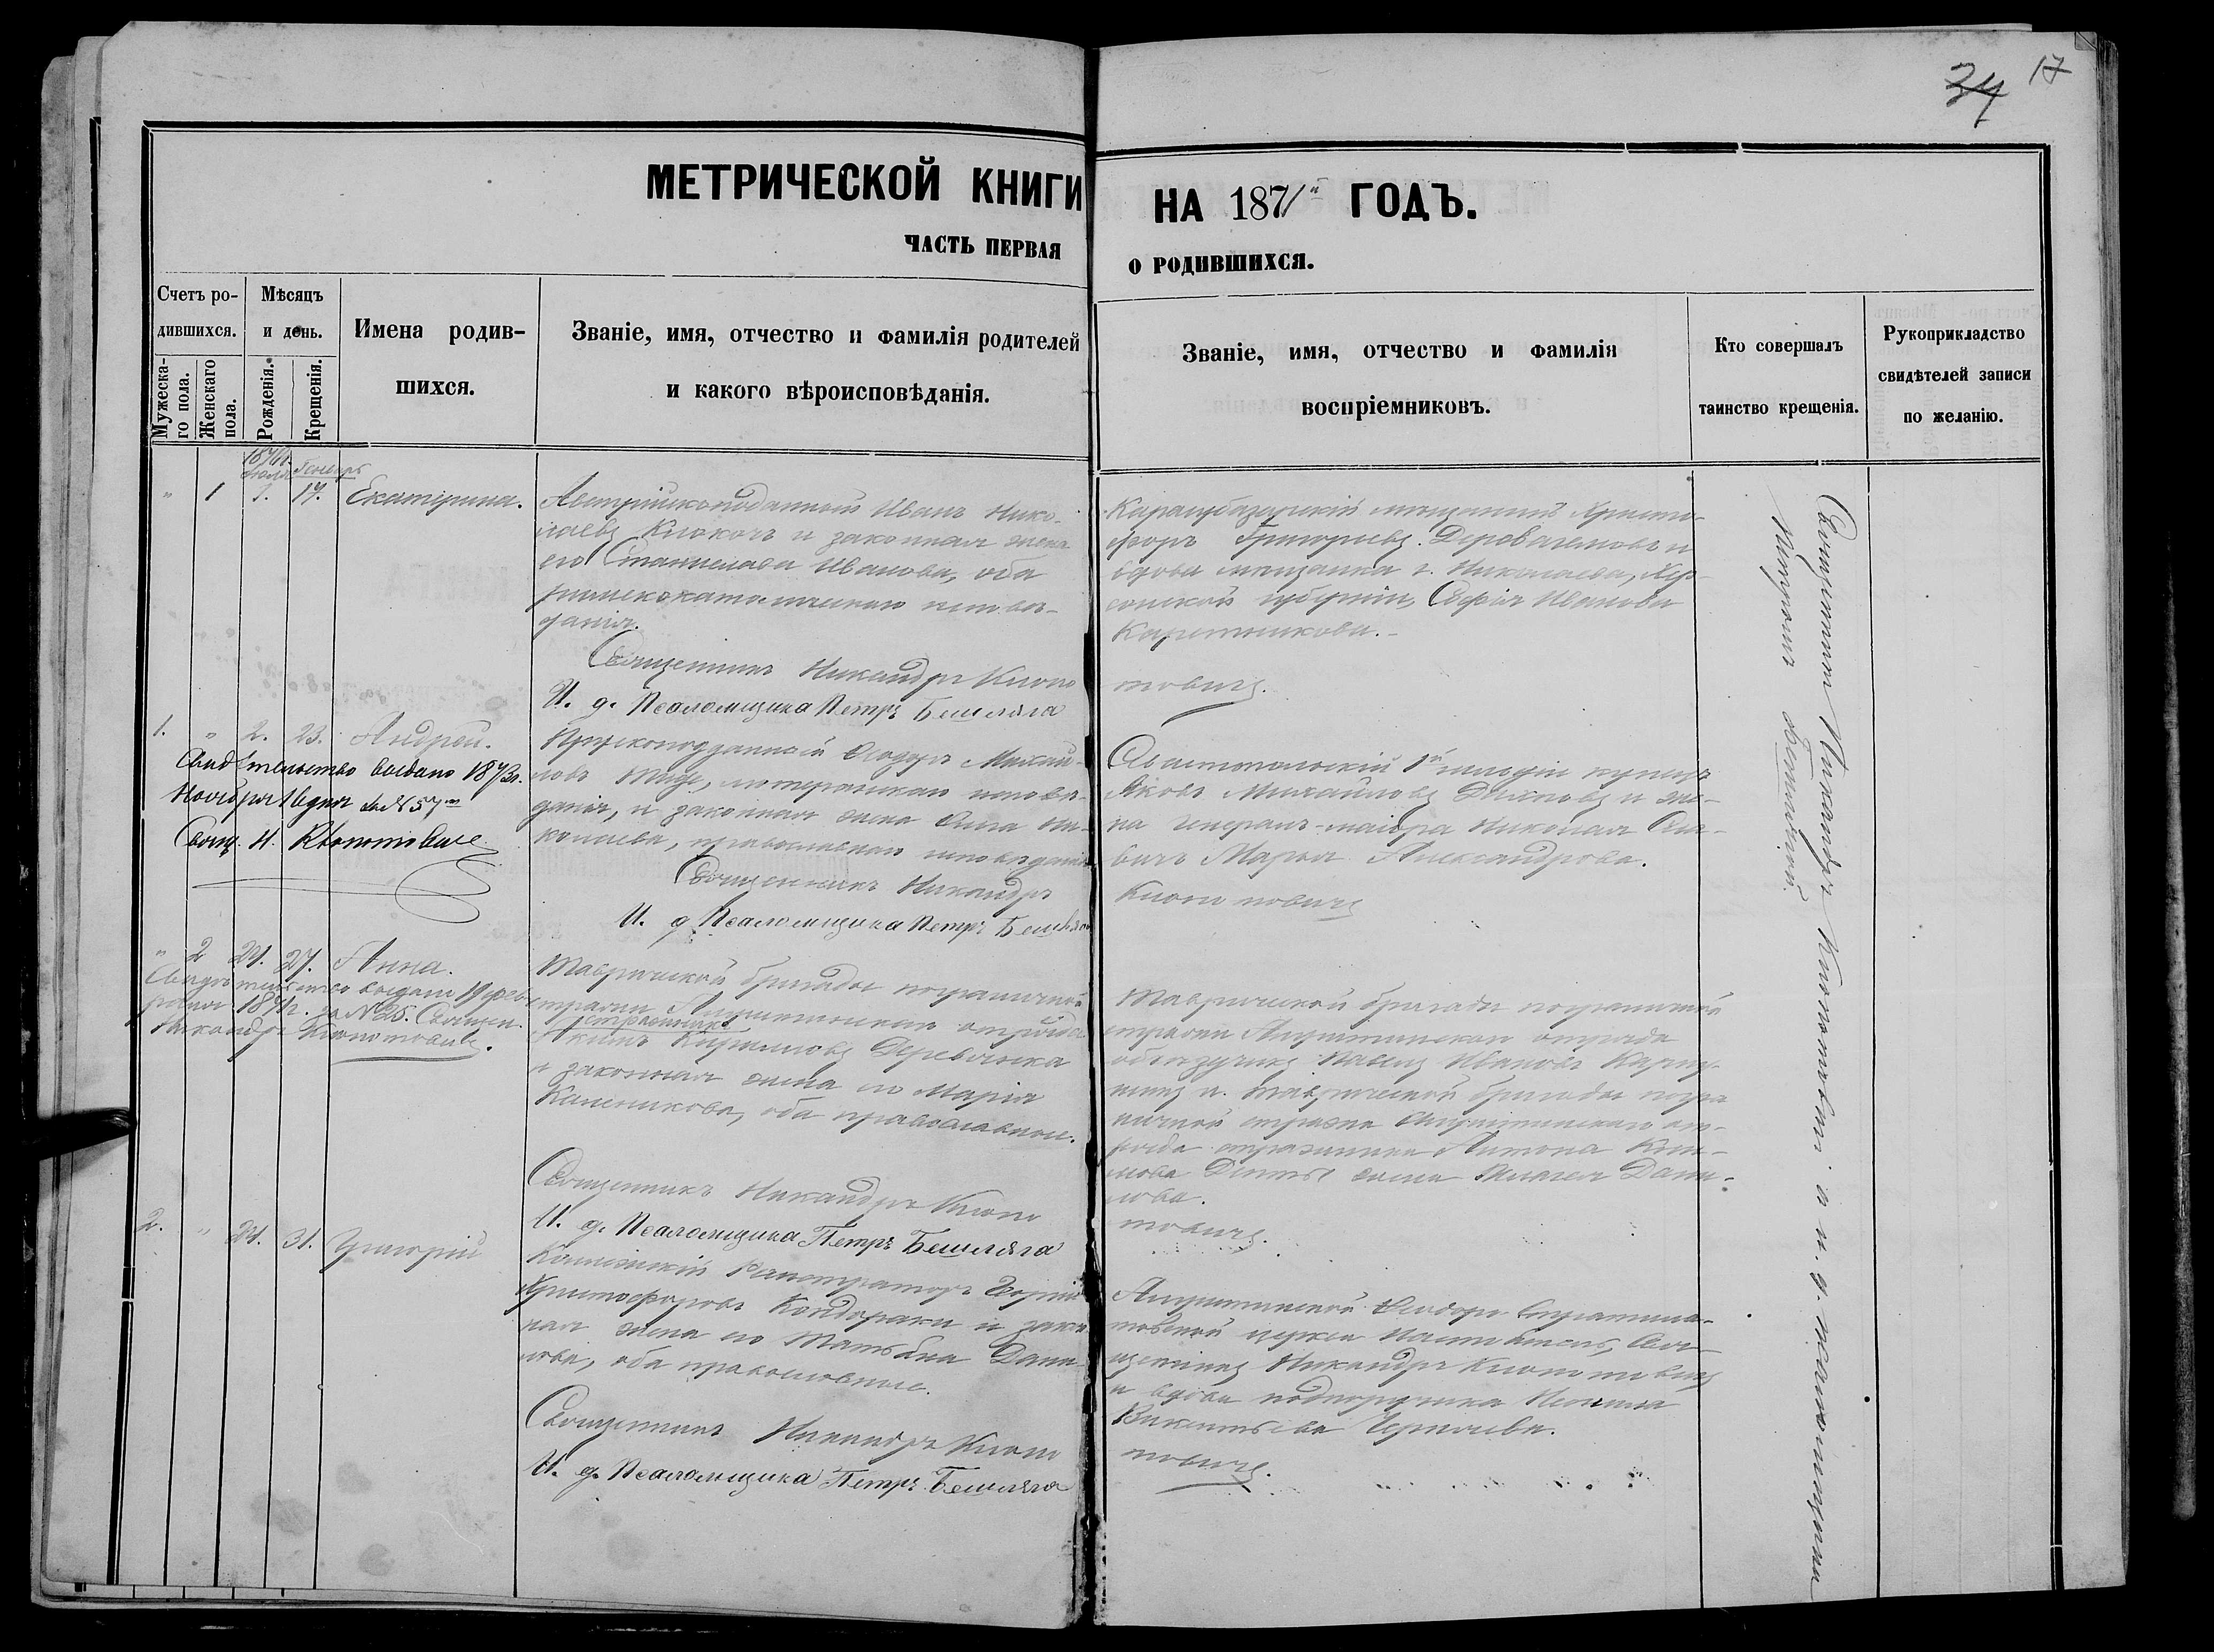 34 17
МЕТРИЧЕСКОЙ КНИГИ НА 1871й ГОДЪ.
ЧАСТЬ ПЕРВАЯ О РОДИВШИХСЯ.
Счетъ ро-
дившихся.
Мужеска-
го пола.
Женскаго
пола.
Мѣсяцъ
и день.
Рожденія.
Крещенія.
Имена родив-
шихся.
Званіе, имя, отчество и фамилія родителей
и какого вѣроисповѣданія.
Званіе, имя, отчество и фамилія
воспріемниковъ.
Кто совершалъ
таинство крещенія.
Рукоприкладство
свидѣтелей записи
по желанію.
Генварь
" 1 17. Екатерина.
Австрійскоподданный Иванъ Нико-
лаевъ Клокочъ и законная жена
его Станислава Иванова, оба
римскокатолическаго исповѣ-
данія.
Священникъ Никандръ Клопо
И. д. Псаломщика Петръ Бешляга
Карасубазарскій мѣщанинъ Христо-
форъ Григорьевъ и
вдова мѣщанка г. Николаева, Хер-
сонской губерніи, Софія Иванова
Каретникова.
товичъ.
1. " 2. 23. Андрей.
Свидѣтельство выдано 1873г.
Ноября 1 дня за №57м
Свящ. Н. Клопотовичъ
Прускоподданный Ѳеодоръ Михай-
ловъ лютеранскаго исповѣ-
данія, и законная жена Ни-
колаева, православнаго исповѣданія
Священникъ Никандръ
И. д. Псаломщика Петръ Бешляга
Севастопольскій 1й гильдіи купецъ
Яковъ Михайловъ и же-
на генералъ-маіора Николая
Марья Александрова.
Клопотовичъ
" 2 21. 27. Анна.
Свидѣтельство выдано 19 фев-
раля за №25. Священ.
Никандръ Клопотовичъ.
Таврической бригады пограничной
стражи Алуштинскаго отряда
стражникъ
Акимъ Кирилловъ Деревянка
и законная жена его Марія
Каленикова, оба православные.
Священникъ Никандръ Клопо
И. д. Псаломщика Петръ Бешляга
Таврической бригады пограничной
стражи Алуштинскаго отряда
объѣздчикъ Павелъ Ивановъ
и Таврической бригады погра
ничной стражи Алуштинскаго от-
ряда стражника Антона
жена Дани-
лова.
товичъ.
2. " 21. 31. Григорій
Коллежскій Регистраторъ Георгій
Христофоровъ Кондораки и закон
ная жена его Татьяна Дани-
лова, оба православные.
Священникъ Никандръ Клопо
И. д. Псаломщика Петръ Бешляга
Алуштинской Ѳеодоро Стратила-
товской церкви Настоятель, Свя-
щенникъ Никандръ Клопотовичъ
и вдова подпоручика
Викентьева Черняева.
товичъ.
Священникъ Никандръ Клопотовичъ и и. д. псаломщика
Петромъ Бешлягой.